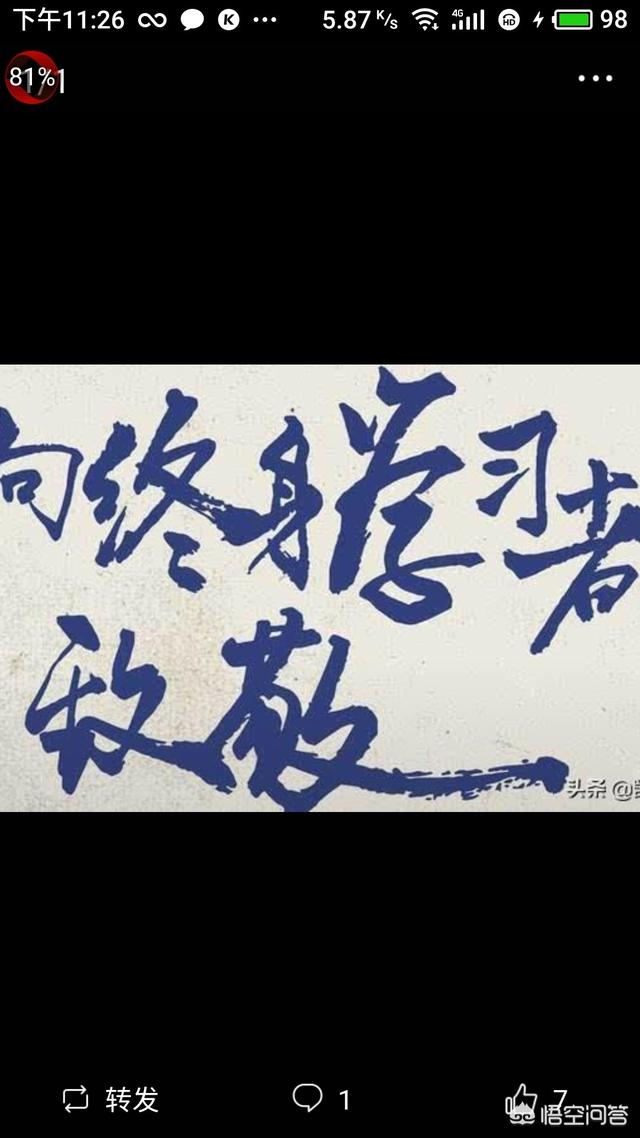 下午11:26 5.87 K/s 4G HD 98
81% 1/1
向终身学习者
致敬
头条 @
转发 1 7
悟空问答